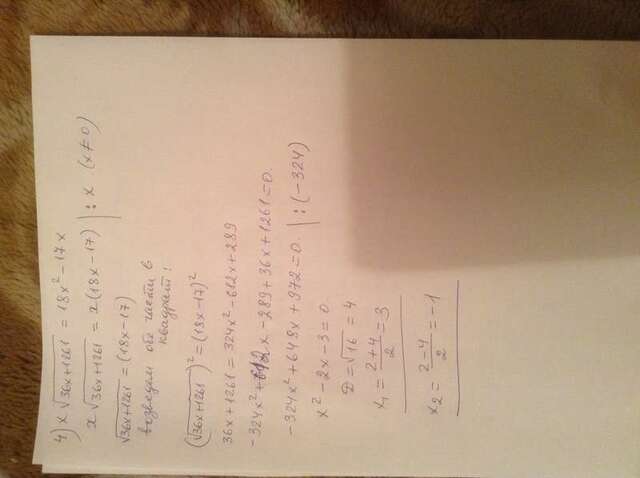 4) x √36x+1261 = 18x² - 17x
x √36x+1261 = x(18x-17) | : x (x≠0)
√36x+1261 = (18x-17)
возведем обе части в
квадрат:
(√36x+1261)² = (18x-17)²
36x+1261 = 324x² - 612x + 289
-324x² + 612x - 289 + 36x + 1261 = 0.
-324x² + 648x + 972 = 0. | : (-324)
x² - 2x - 3 = 0
D = √16 = 4
x₁ = (2+4)/2 = 3
x₂ = (2-4)/2 = -1